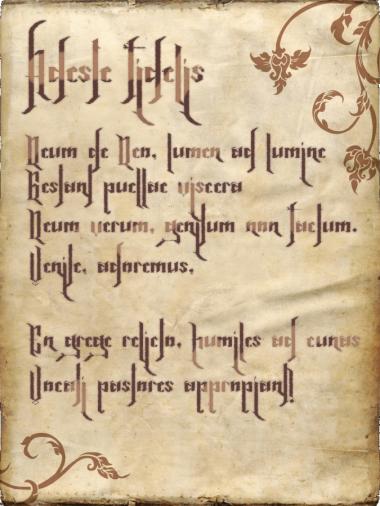 Adeste fidelis
Deum de Deo, lumen ad lumine
Gestant puellae viscera
Deum verum, genitum non factum.
Venite, adoremus,
En grege relicto, humiles ad cunas
Vocati pastores appropiant!